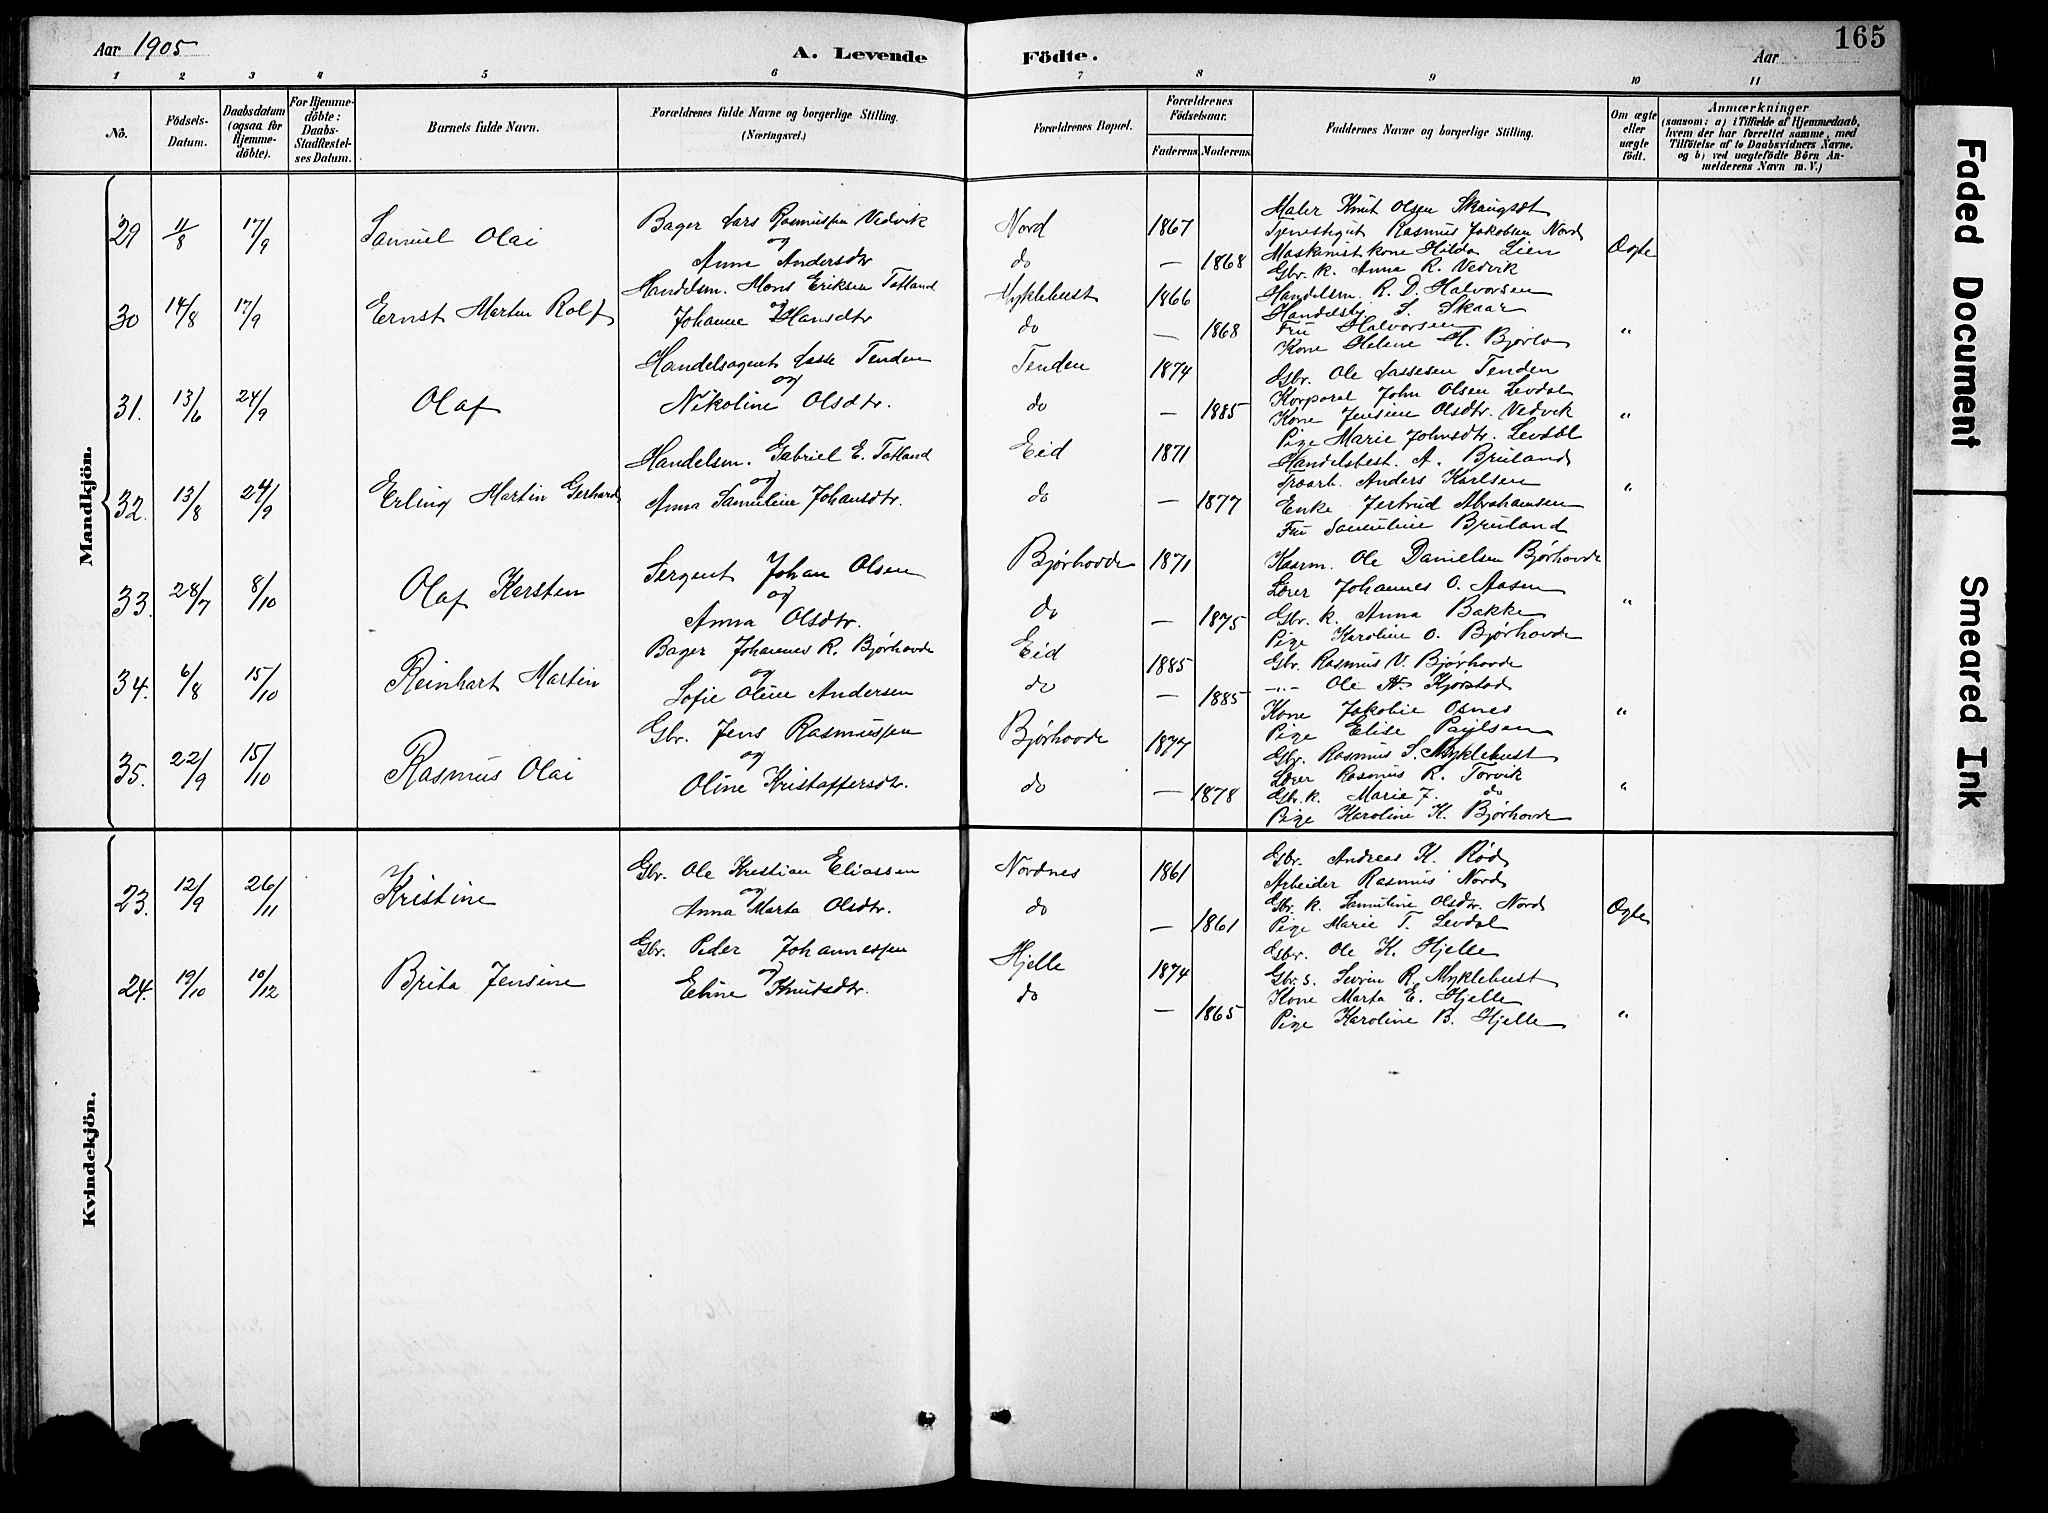 Aar 1905
A. Levende
Födte.
Aar
165
1 2 3 4 5 6 7 8 9 10 11
No.
Födsels-
Datum.
Daabsdatum
(ogsaa for
Hjemme-
döbte).
For Hjemme-
döbte:
Daabs-
Stadfæstel-
ses Datum.
Barnets fulde Navn.
Forældrenes fulde Navne og borgerlige Stilling.
(Næringsvei.)
Forældrenes Bopæl.
Forældrenes
Födselsaar.
Faderens.
Moderens.
Faddernes Navne og borgerlige Stilling.
Om ægte
eller
uægte
födt.
Anmærkninger
(saasom: a) i Tilfælde af Hjemmedaab,
hvem der har forrettet samme, med
Tilföielse af to Daabsvidners Navne.
og b) ved uægtefödte Börn An-
melderens Navn m. V.)
Mandkjön.
29 11/8 17/9
Samuel Olai
Bager Lars Rasmussen Vedvik
og
Anne Andersdtr
Nord
do
1867
— 1868
Maler Knut Olsen
Tjenestegut Rasmus Jakobsen Nord
Maskinist kone Hilda Lien
Gbr. k. Anna R. Vedvik
Ægte
30 14/8 17/9
Ernst Martin Rolf
Handelsm. Mons Eriksen Tatland
og
Johanne Hansdtr
Myklebust
do
1866
— 1868
Handelsm. R. D. Halvorsen
Handelsbtj. S. Skaar
Fru Halvorsen
Kone Helene H. Bjørlo
"
31. 13/6 24/9
Olaf
Handelsagent Lasse Tenden
og
Nikoline Olsdtr.
Tenden
do
1874
— 1885
Gbr. Ole Lassesen Tenden
Korporal John Olsen Levdal
Kone Jensine Olsdtr. Vedvik
Pige Marie Johnsdtr. Levdal
"
32. 13/8 24/9
Erling Martin Gerhard
Handelsm. Gabriel E. Tatland
og
Anna Samuline Johansdtr.
Eid
do
1871
— 1877
Handelsbest. A. Bruland
Troarb. Anders Karlsen
Enke Jertrud Abrahamsen
Fru Samuline Bruland
"
33. 28/7 8/10
Olaf Karsten
Sergent Johan Olsen
og
Anna Olsdtr.
Bjørhovde
do
1871
— 1875
Kaarm. Ole Danielsen Bjørhovde
Lærer Johannes O. Aasen
Gbr. k. Anna Bakke
Pige Karoline O. Bjørhovde
"
34. 6/8 15/10
Reinhart Martin
Bager Johannes R. Bjørhovde
og
Sofie Oline Andersen
Eid
do
1885
— 1885
Gbr. Rasmus V. Bjørhovde
-"- Ole N. Kjørstad
Kone Jakobie Osnes
Pige Elise Paulsen
"
35. 22/9 15/10
Rasmus Olai
Gbr. Jens Rasmussen
og
Oline Kristaffersdtr.
Bjørhovde
do
1877
— 1878
Gbr. Rasmus S. Myklebust
Lærer Rasmus R. Torvik
Gbr. k. Marie J. do
Pige Karoline K. Bjørhovde
"
Kvindekjön.
23. 12/9 26/11
Kristine
Gbr. Ole Kristian Eliassen
og
Anna Marta Olsdtr.
Nordnes
do
1861
— 1861
Gbr. Andreas K. Rød
Arbeider Rasmus Nord
Gbr. k. Samuline Olsdtr. Nord
Pige Marie T. Levdal
Ægte
24. 19/10 10/12
Brita Jensine
Gbr. Peder Johannessen
og
Eline Knutsdtr.
Hjelle
do
1874
— 1865
Gbr. Ole K. Hjelle
Gbr. s. Sevrin R. Myklebust
Kone Marta E. Hjelle
Pige Karoline B. Hjelle
"
Faded Document
Smeared Ink